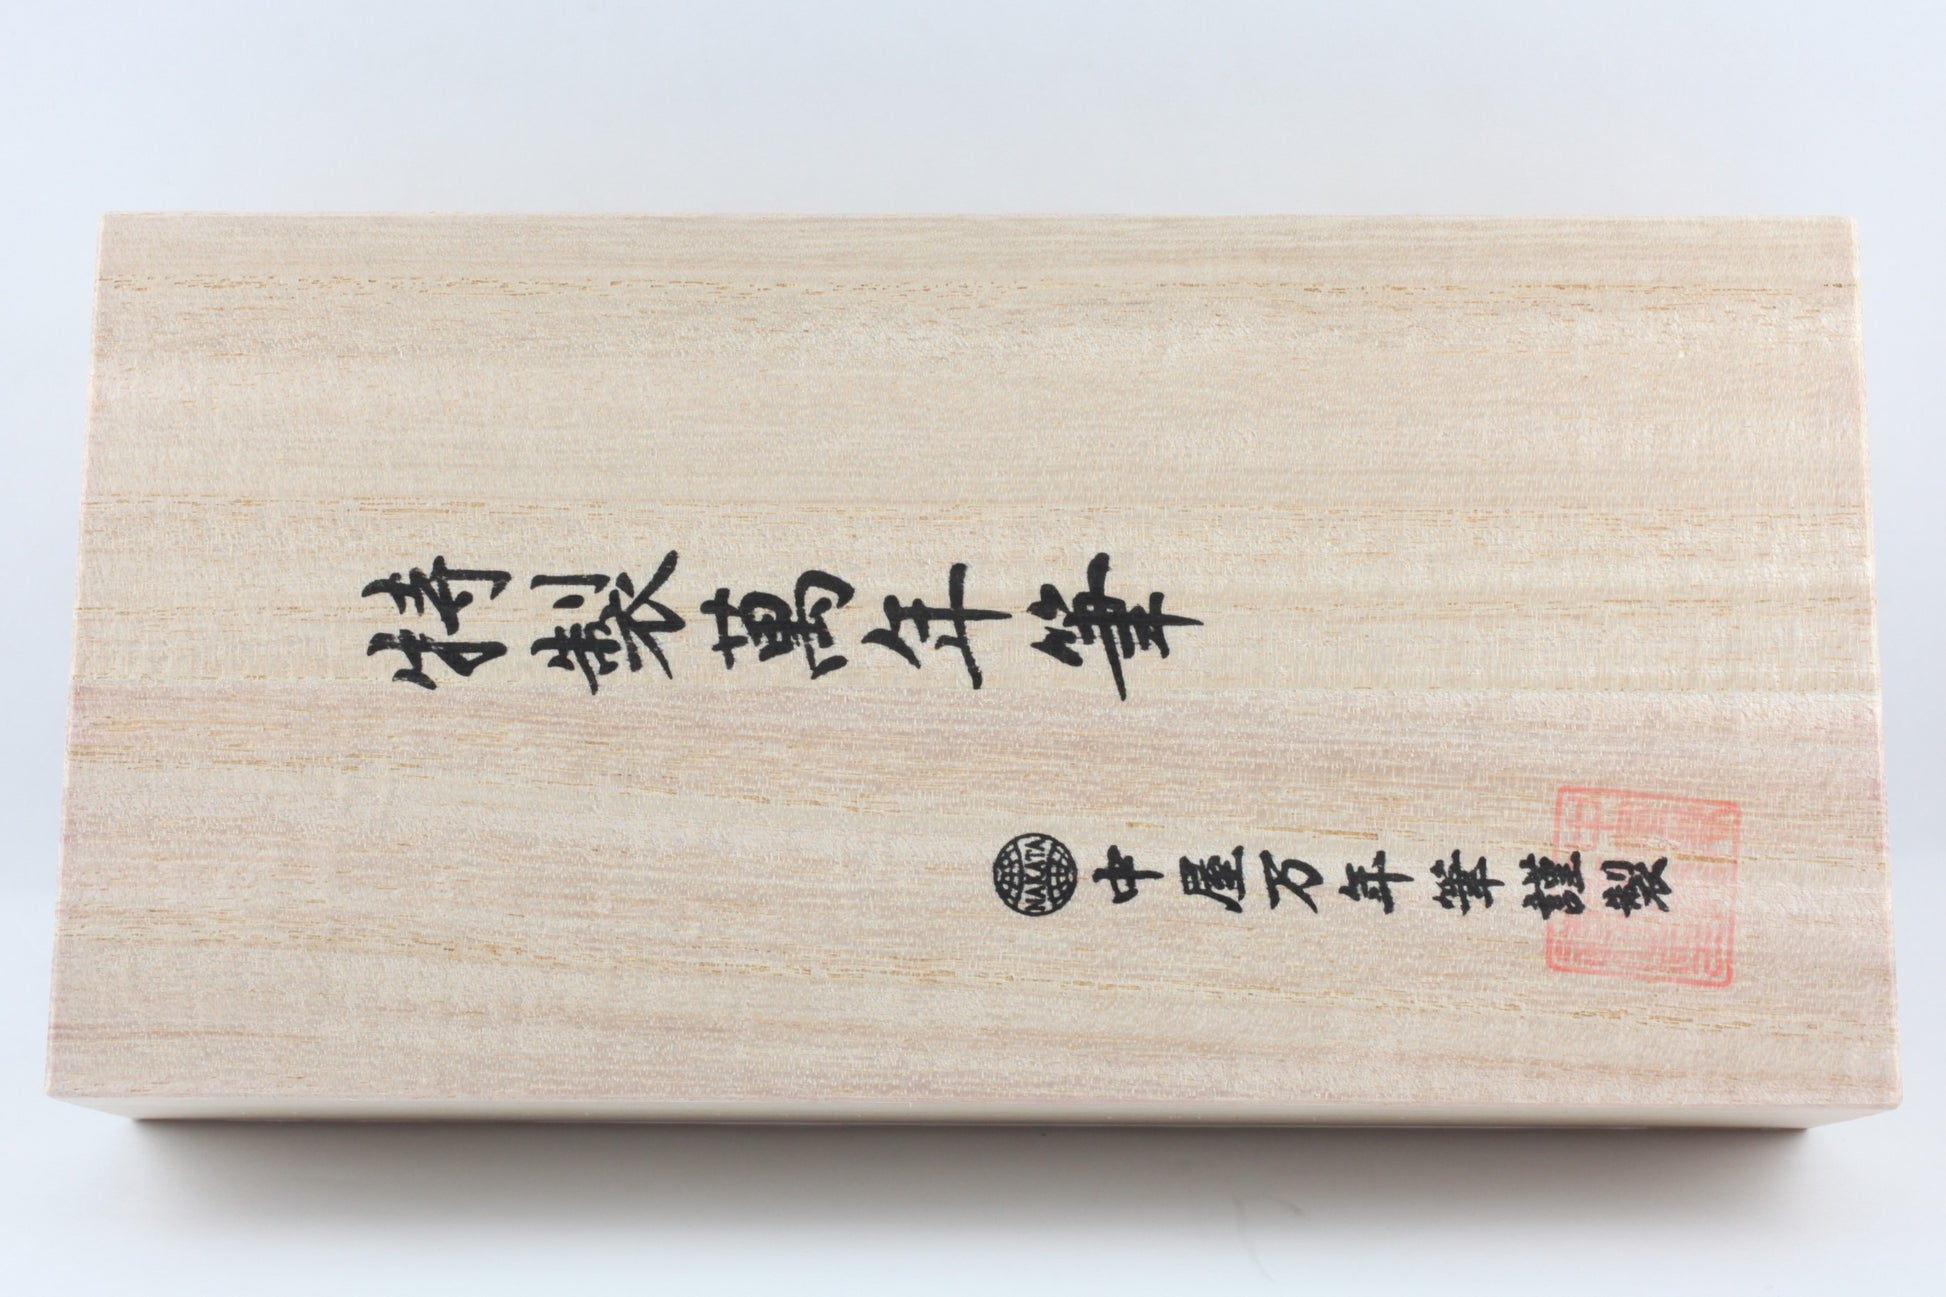 特製萬年筆
NAKATA 中屋万年筆謹製